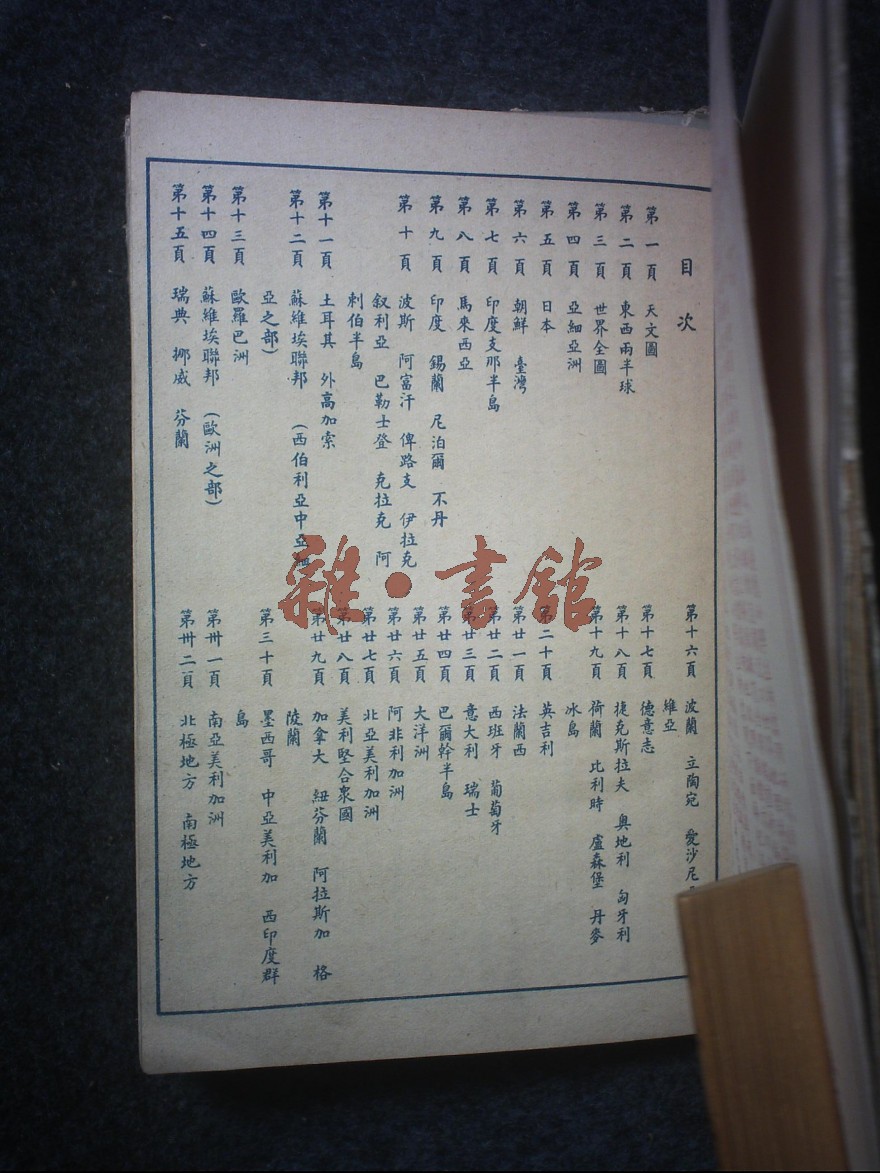 目次
第一頁 天文圖
第二頁 東西兩半球
第三頁 世界全圖
第四頁 亞細亞洲
第五頁 日本
第六頁 朝鮮 臺灣
第七頁 印度支那半島
第八頁 馬來西亞
第九頁 印度 錫蘭 尼泊爾 不丹
第十頁 波斯 阿富汗 俾路支 伊拉克
叙利亞 巴勒士登 克拉克 阿
剌伯半島
第十一頁 土耳其 外高加索
第十二頁 蘇維埃聯邦 (西伯利亞中亞細
亞之部)
第十三頁 歐羅巴洲
第十四頁 蘇維埃聯邦 (歐洲之部)
第十五頁 瑞典 挪威 芬蘭
第十六頁 波蘭 立陶宛 愛沙尼
維亞
第十七頁 德意志
第十八頁 捷克斯拉夫 奧地利 匈牙利
第十九頁 荷蘭 比利時 盧森堡 丹麥
冰島
第二十頁 英吉利
第廿一頁 法蘭西
第廿二頁 西班牙 葡萄牙
第廿三頁 意大利 瑞士
第廿四頁 巴爾幹半島
第廿五頁 大洋洲
第廿六頁 阿非利加洲
第廿七頁 北亞美利加洲
第廿八頁 美利堅合衆國
第廿九頁 加拿大 紐芬蘭 阿拉斯加 格
陵蘭
第三十頁 墨西哥 中亞美利加 西印度群
島
第卅一頁 南亞美利加洲
第卅二頁 北極地方 南極地方
雜·書館